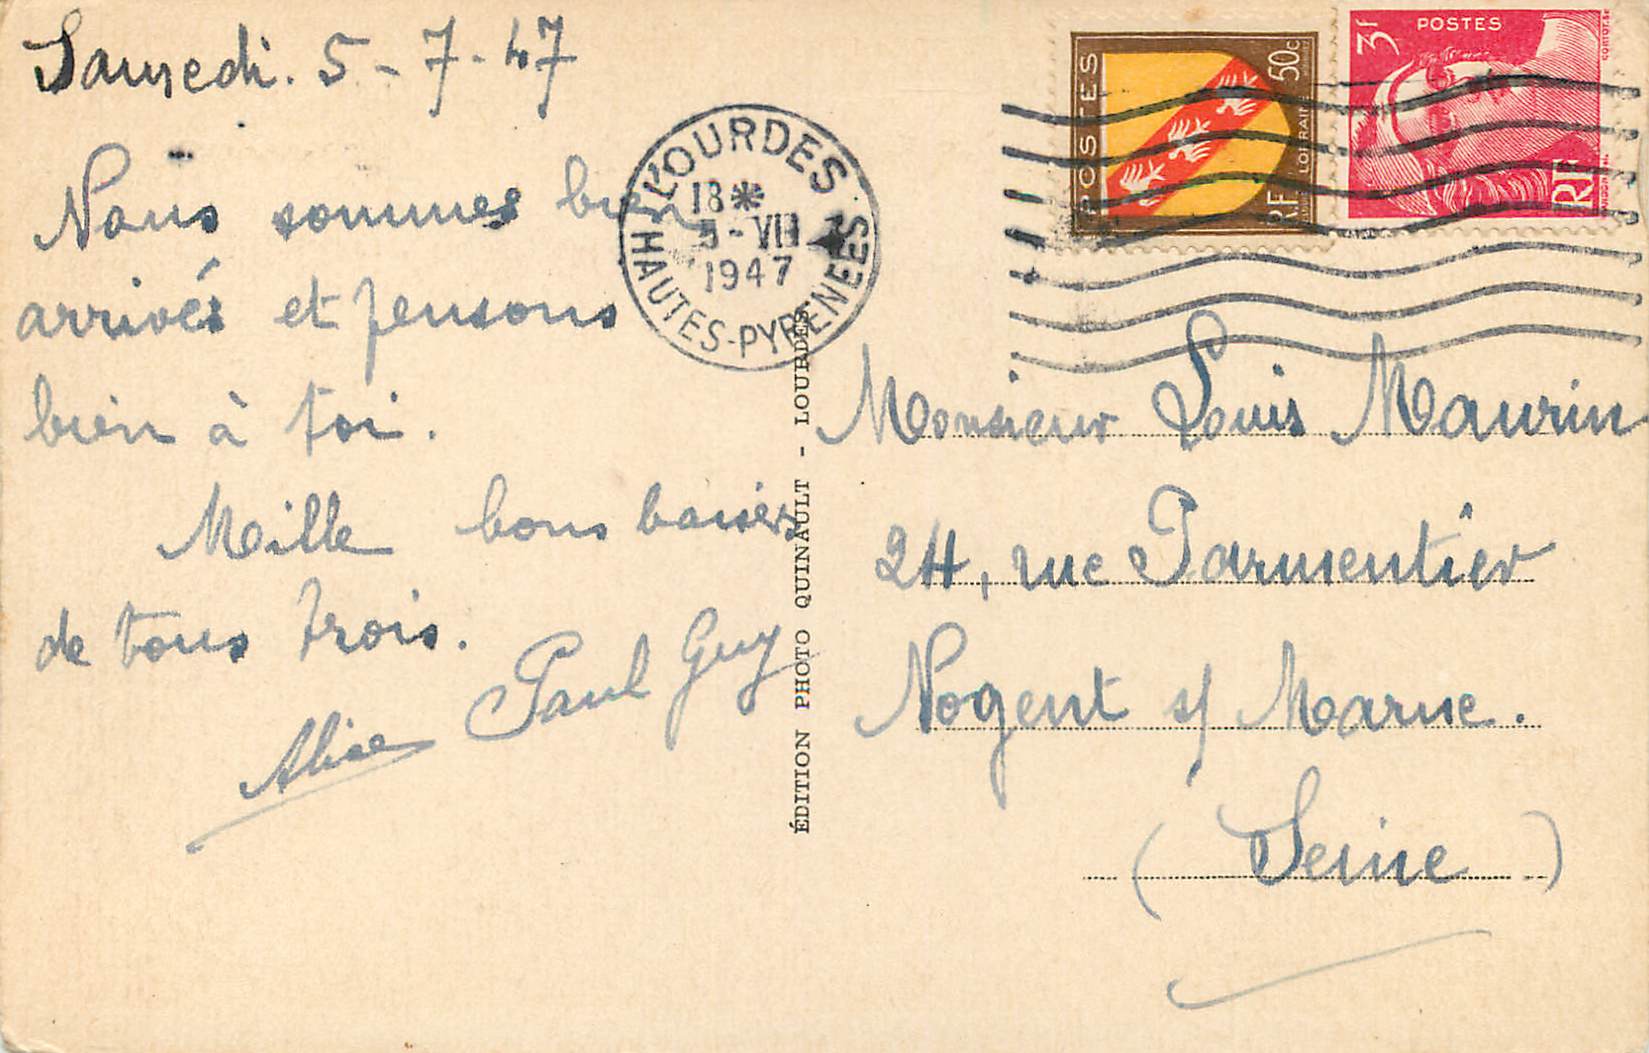 Samedi. 5-7-47
Nous sommes bien
arrivés et pensons
bien à toi.
Mille bons baisers
de tous trois.
Alice Paul Guy
LOURDES
18*
5-VII
1947
HAUTES-PYRENEES
ÉDITION PHOTO QUINAULT - LOURDES
POSTES
50c
LORRAINE
RF
3f
POSTES
RF
Monsieur Louis Maurin
24, rue Parmentier
Nogent s/ Marne.
(Seine)